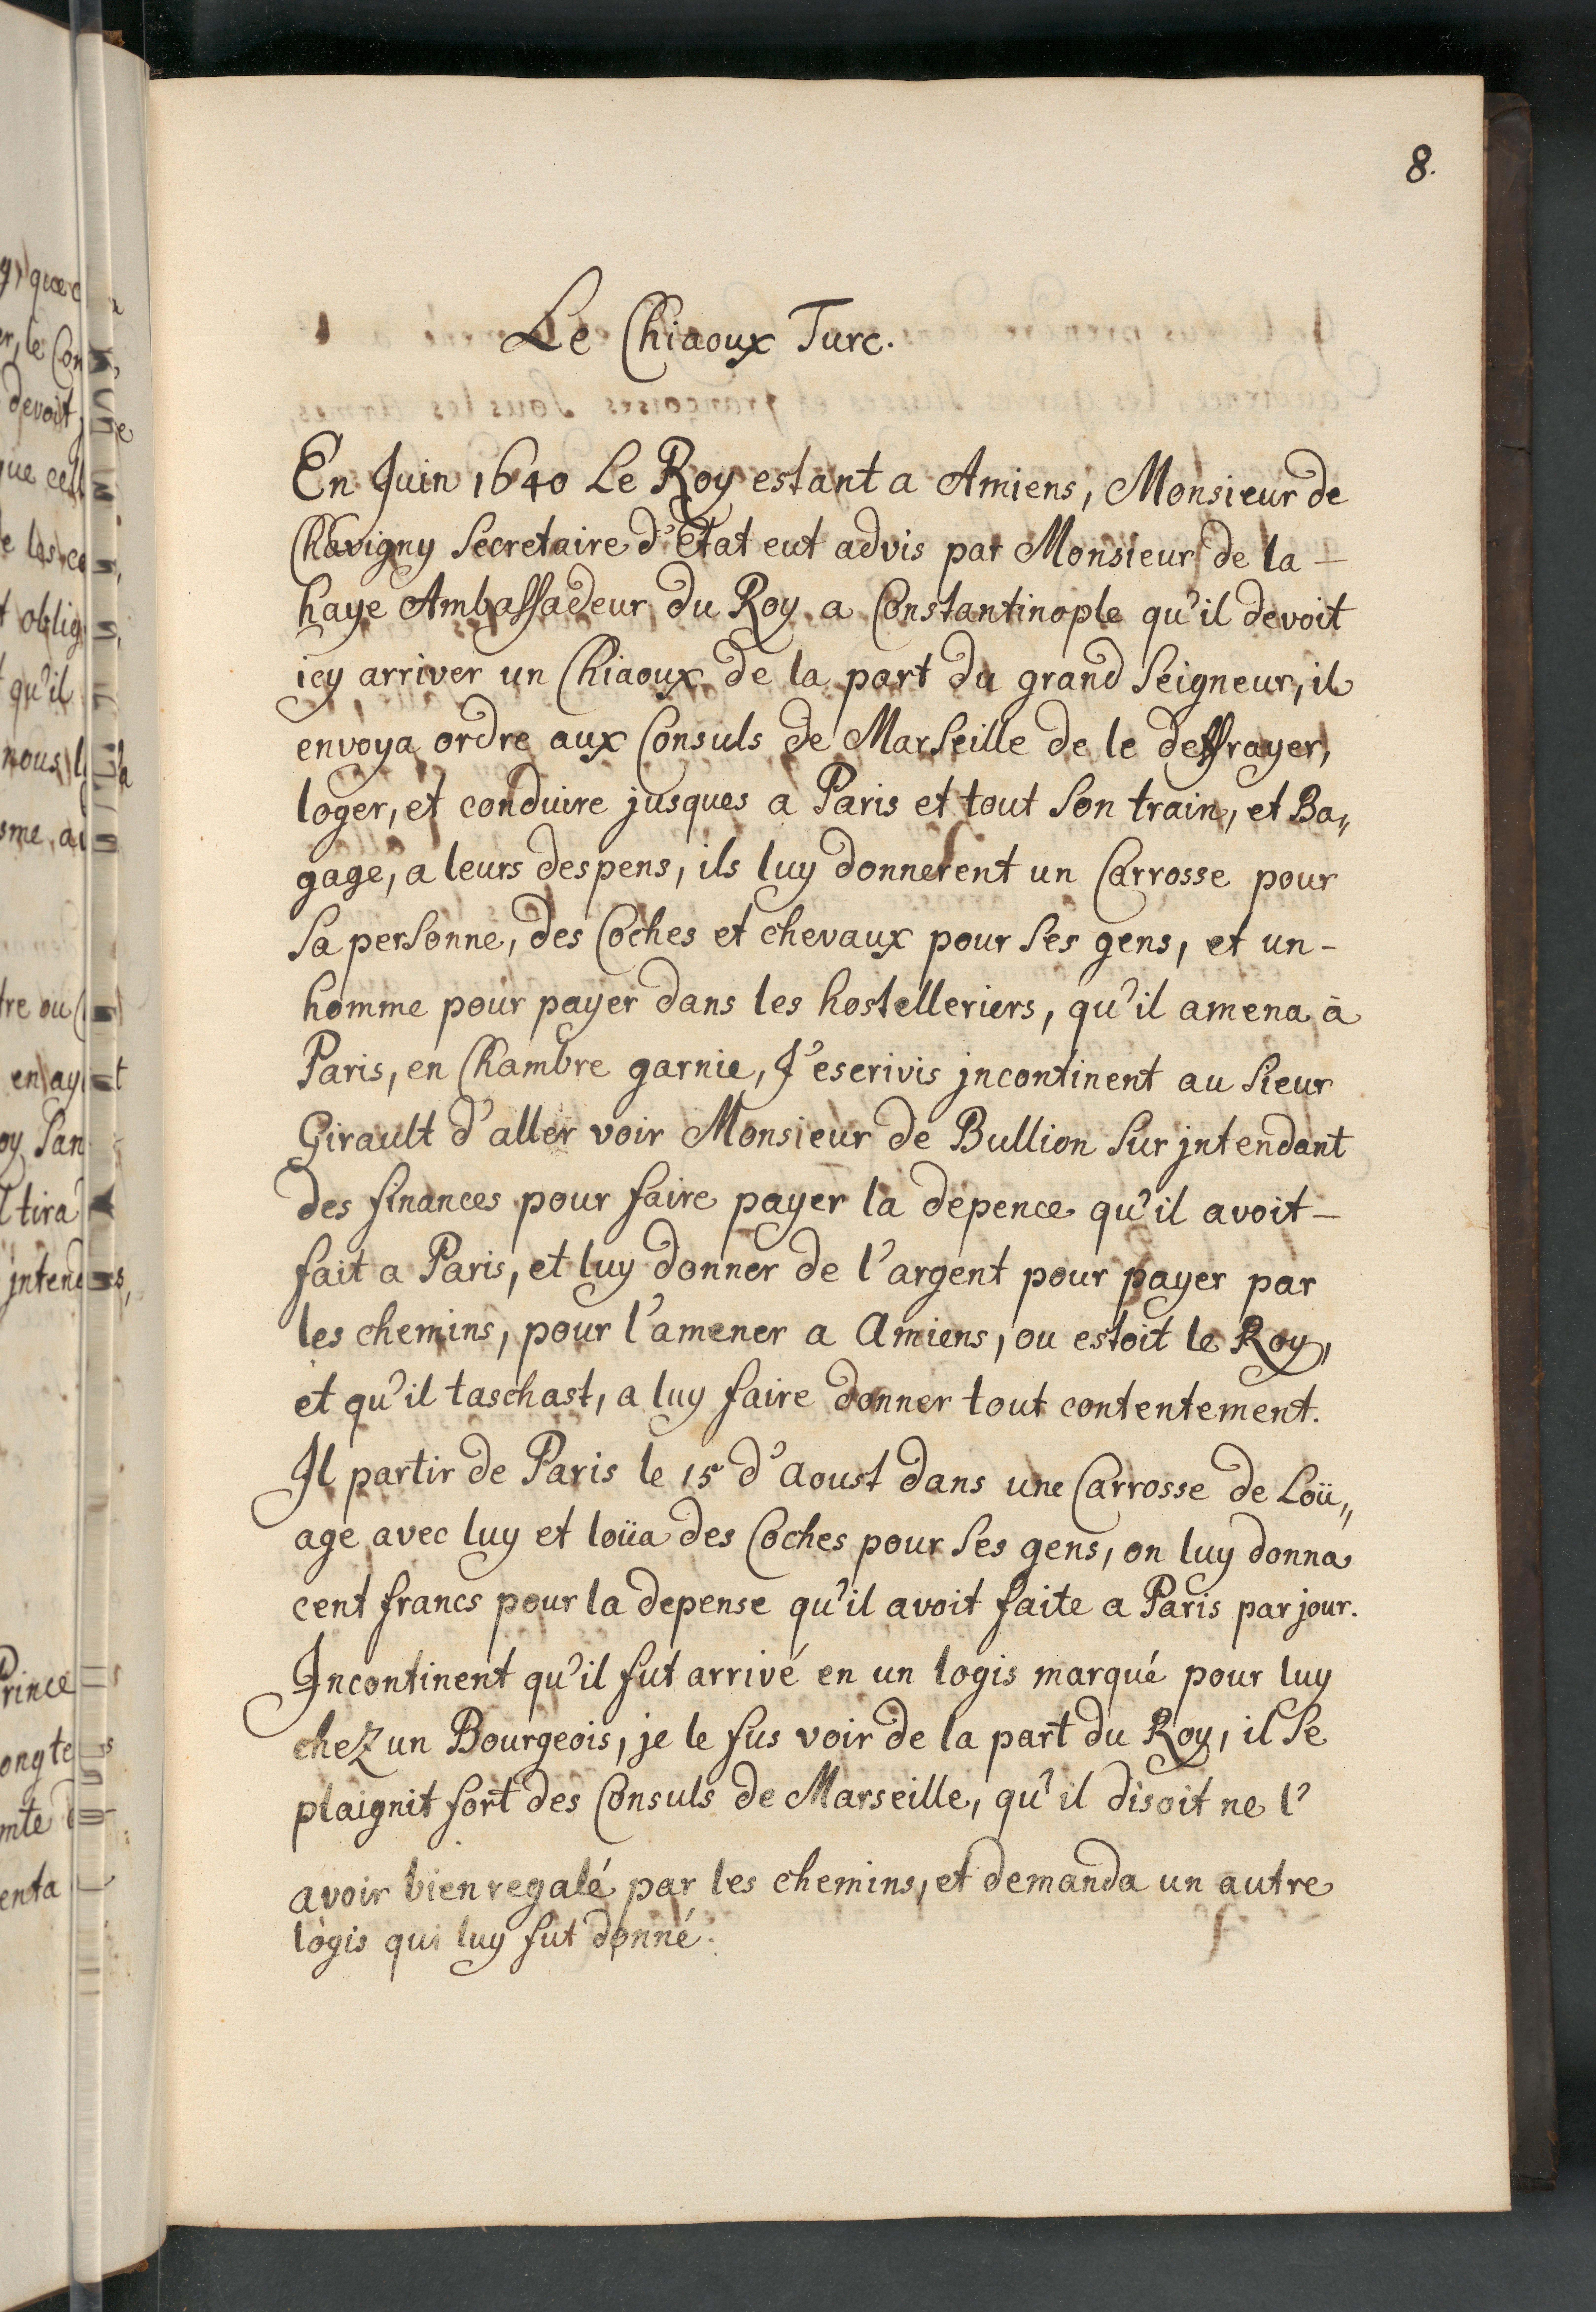 8.
Le Chiaoux Turc.
En Juin 1640 Le Roy estant a Amiens, Monsieur de
Chavigny Secretaire d'Etat eut advis par Monsieur de la –
haye Ambassadeur du Roy a Constantinople qu'il devoit
icy arriver un Chiaoux de la part du grand Seigneur, il
envoya ordre aux Consuls de Marseille de le deffrayer,
loger, et conduire jusques a Paris et tout son train, et Ba„
gage, a leurs despens, ils luy donnerent un Carrosse pour
sa personne, des Coches et chevaux pour ses gens, et un –
homme pour payer dans les hostelleriers, qu'il amena à
Paris, en Chambre garnie, J'escrivis jncontinent au Sieur
Girault d'aller voir Monsieur de Bullion Sur jntendant
des finances pour faire payer la depence qu'il avoit –
fait a Paris, et luy donner de l'argent pour payer par
les chemins, pour l'amener a Amiens, ou estoit le Roy,
et qu'il taschast, a luy faire donner tout contentement.
Il partir de Paris le 15 d'Aoust dans une Carrosse de Loü„
age avec luy et loüa des Coches pour ses gens, on luy donna
cent francs pour la depense qu'il avoit faite a Paris par jour.
Incontinent qu'il fut arrivé en un logis marqué pour luy
chez un Bourgeois, je le fus voir de la part du Roy, il se
plaignit fort des Consuls de Marseille, qu'il disoit ne l'
avoir bien regalé par les chemins, et demanda un autre
logis qui luy fut donné.